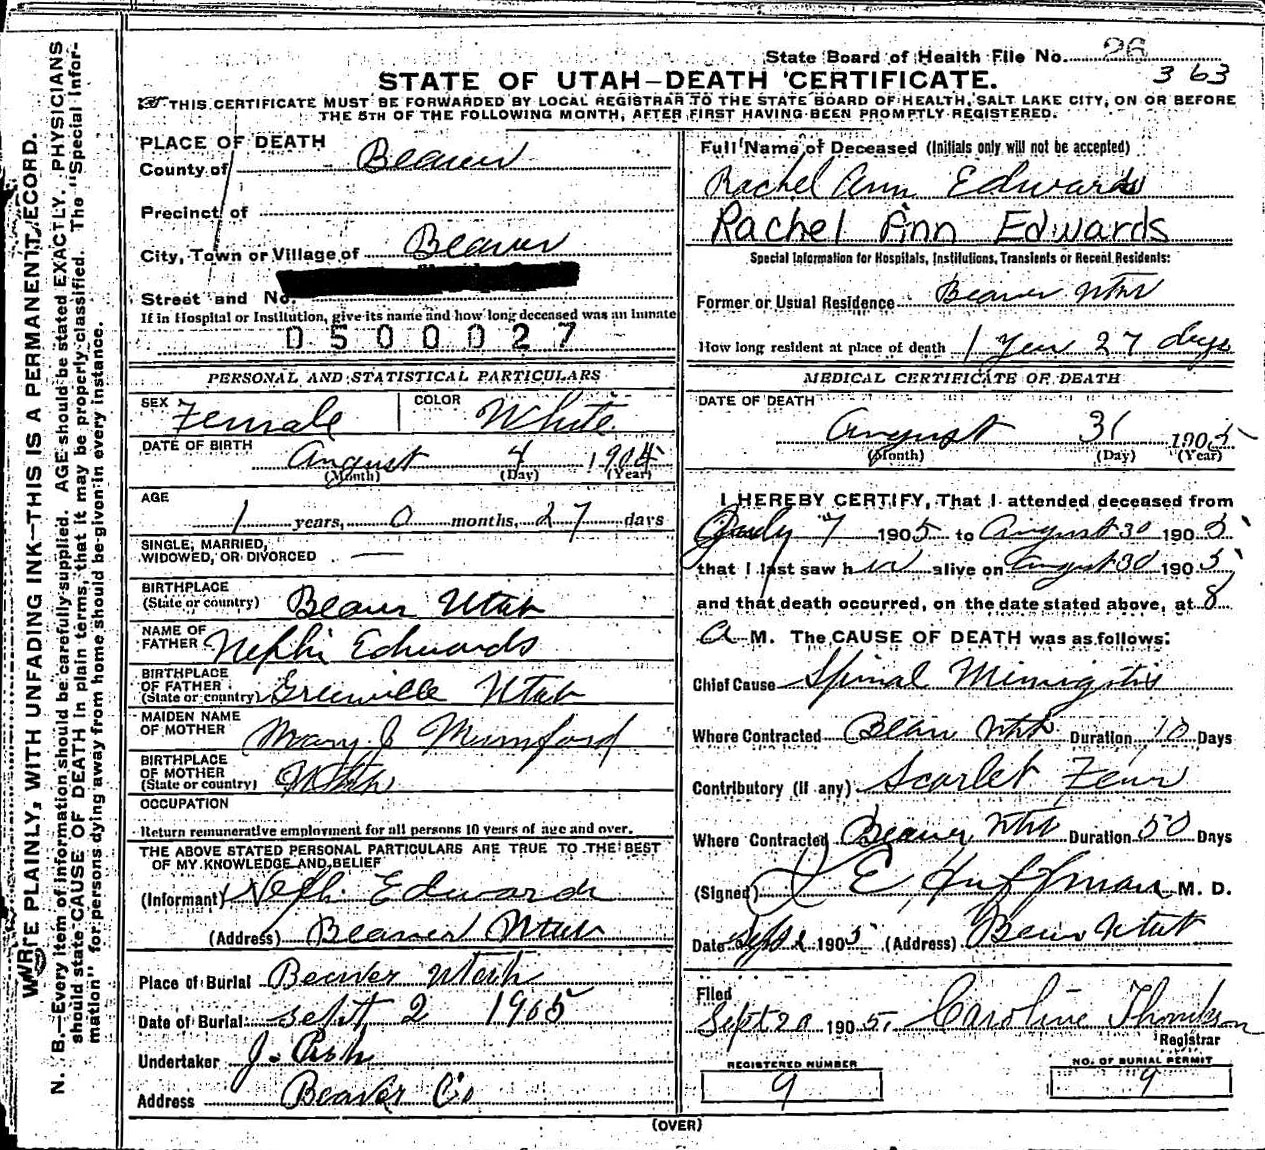 WRITE PLAINLY, WITH UNFADING INK—THIS IS A PERMANENT RECORD.
N. B.—Every item of information should be carefully supplied. AGE should be stated EXACTLY. PHYSICIANS
should state CAUSE OF DEATH in plain terms, that it may be properly classified. The "Special Infor-
mation" for persons dying away from home should be given in every instance.
State Board of Health File No. 26
363
STATE OF UTAH—DEATH CERTIFICATE.
THIS CERTIFICATE MUST BE FORWARDED BY LOCAL REGISTRAR TO THE STATE BOARD OF HEALTH, SALT LAKE CITY, ON OR BEFORE
THE 5TH OF THE FOLLOWING MONTH, AFTER FIRST HAVING BEEN PROMPTLY REGISTERED.
PLACE OF DEATH
County of Beaver
Precinct of
City, Town or Village of Beaver
Street and No.
If in Hospital or Institution, give its name and how long deceased was an inmate
0500027
PERSONAL AND STATISTICAL PARTICULARS
SEX Female COLOR White
DATE OF BIRTH
August 4 1904
(Month) (Day) (Year)
AGE
1 years, 0 months, 27 days
SINGLE, MARRIED,
WIDOWED, OR DIVORCED —
BIRTHPLACE
(State or country) Beaver Utah
NAME OF
FATHER Nephi Edwards
BIRTHPLACE
OF FATHER
(State or country) Greenville Utah
MAIDEN NAME
OF MOTHER Mary J Mumford
BIRTHPLACE
OF MOTHER
(State or country) Utah
OCCUPATION
Return remunerative employment for all persons 10 years of age and over.
THE ABOVE STATED PERSONAL PARTICULARS ARE TRUE TO THE BEST
OF MY KNOWLEDGE AND BELIEF
(Informant) Neph. Edwards
(Address) Beaver Utah
Place of Burial Beaver Utah
Date of Burial sept 2 1905
Undertaker J.
Address Beaver Co
Full Name of Deceased (Initials only will not be accepted)
Rachel Ann Edwards
Rachel Ann Edwards
Special Information for Hospitals, Institutions, Transients or Recent Residents:
Former or Usual Residence Beaver Utah
How long resident at place of death 1 Year 27 days
MEDICAL CERTIFICATE OF DEATH
DATE OF DEATH
August 31 1905
(Month) (Day) (Year)
I HEREBY CERTIFY, That I attended deceased from
July 7 1905 to August 30 1905
that I last saw her alive on August 30 1905
and that death occurred, on the date stated above, at 8
A M. The CAUSE OF DEATH was as follows:
Chief Cause Spinal Minigitis
Where Contracted Beaver Utah Duration 10 Days
Contributory (if any) Scarlet Fever
Where Contracted Beaver Utah Duration 50 Days
(Signed) E Huffman M. D.
Date Sept 1 1905 (Address) Beaver Utah
Filed
Sept 20 1905 Caroline Thomkson
Registrar
REGISTERED NUMBER
9
NO. OF BURIAL PERMIT
9
(OVER)